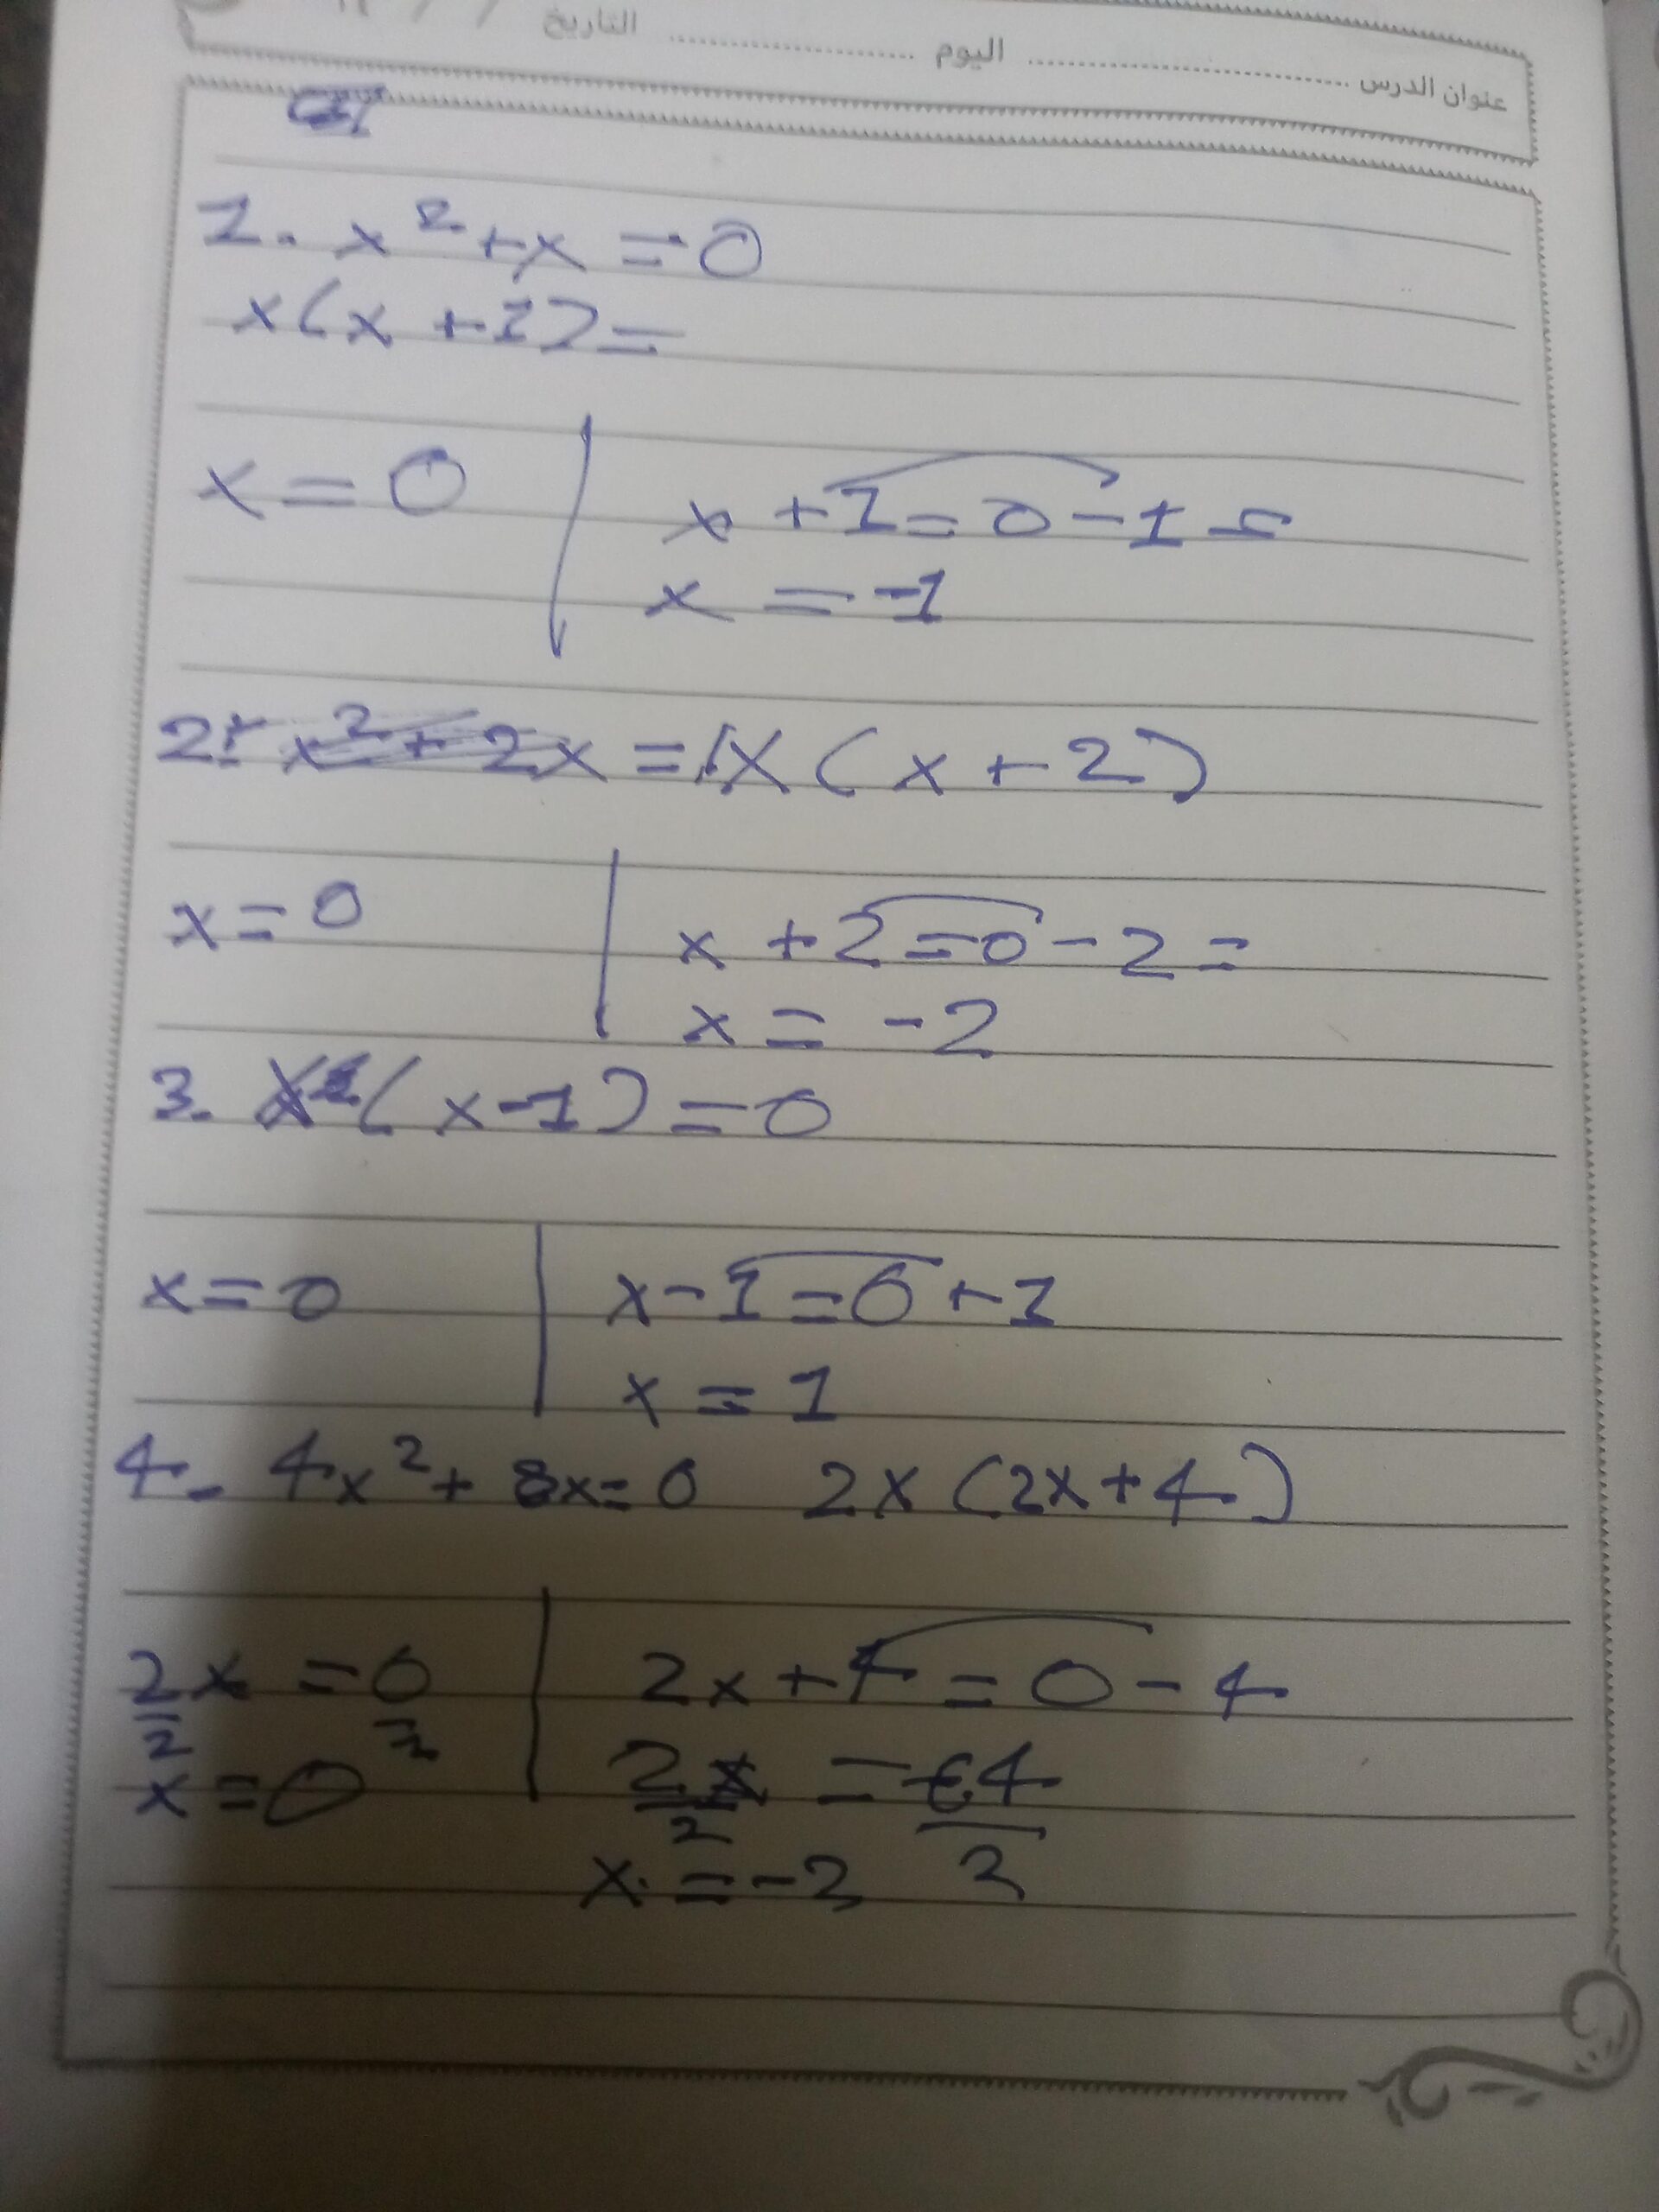 عنوان الدرس ........................ اليوم .................. التاريخ
1. x² + x = 0
x(x + 1) =
x = 0 | x + 1 = 0 - 1 =
x = -1
2. x² + 2x = x(x + 2)
x = 0 | x + 2 = 0 - 2 =
x = -2
3. x(x - 1) = 0
x = 0 | x - 1 = 0 + 1
x = 1
4. 4x² + 8x = 0 2x(2x + 4)
2x/2 = 0/2 | 2x + 4 = 0 - 4
x = 0 | 2x/2 = -4/2
x = -2